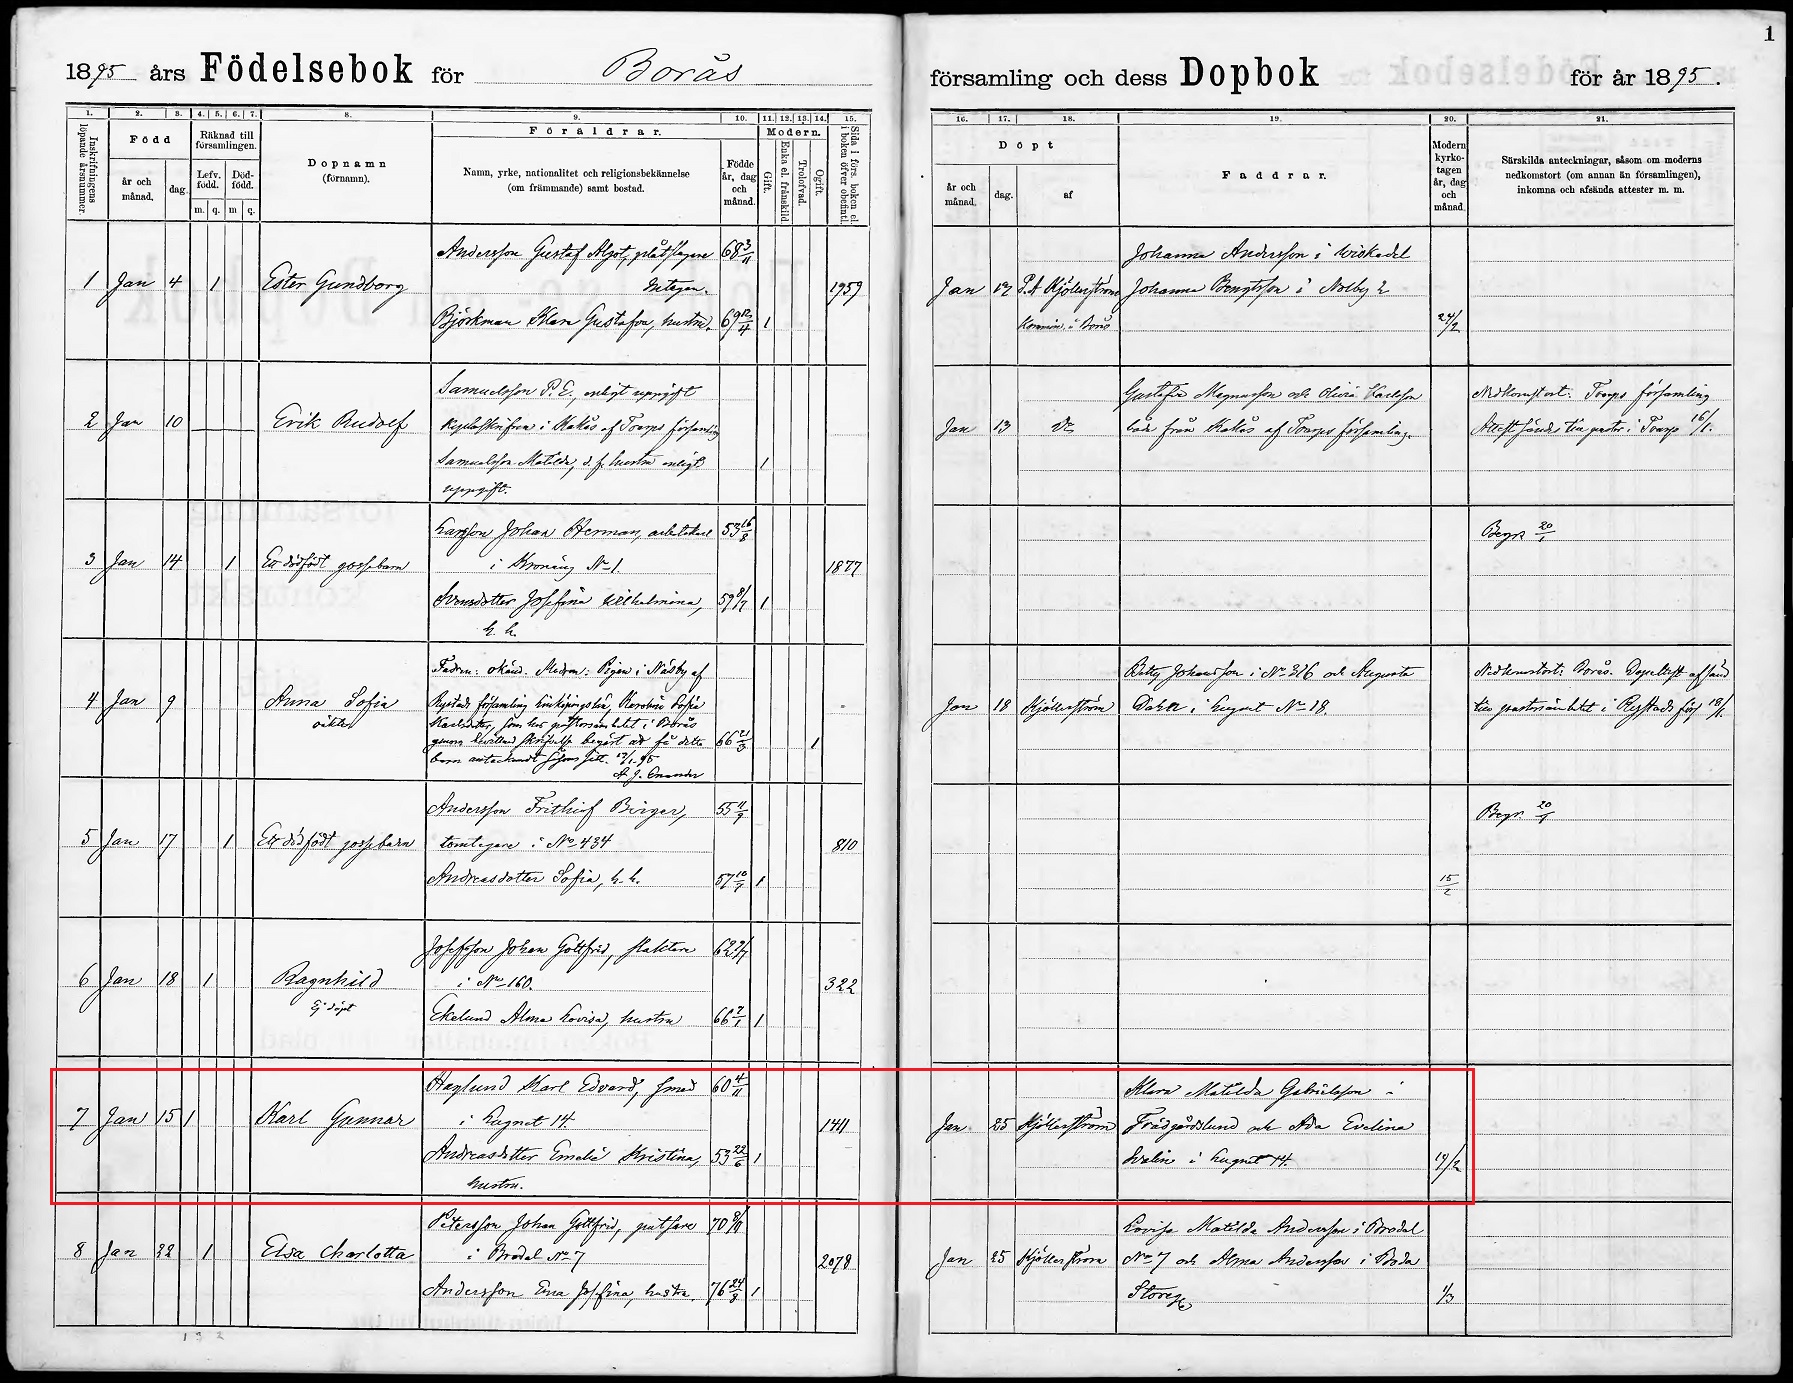 1895 års Födelsebok för Borås
församling och dess Dopbok för år 1895.
1
1. 2. 3. 4. 5. 6. 7. 8. 9. 10. 11. 12. 13. 14. 15.
16. 17. 18. 19. 20. 21.
Inskrifningens löpande årsnummer.
Född
år och månad.
dag.
Räknad till församlingen.
Lefv. född.
Död-född.
m. q. m q.
Dopnamn
(förnamn).
Föräldrar.
Namn, yrke, nationalitet och religionsbekännelse
(om främmande) samt bostad.
Födde år, dag och månad.
Modern.
Gift.
Enka el. frånskild.
Trolofvad.
Ogift.
Sida i förs. boken el. i boken öfver obefintl.
Döpt
år och månad.
dag.
af
Faddrar.
Modern kyrko-tagen år, dag och månad.
Särskilda anteckningar, såsom om moderns
nedkomstort (om annan än församlingen),
inkomna och afsända attester m. m.
Andersson Gustaf Algot, plåtslagare 68 3/11
1 Jan 4 1 Ester Gundborg 1959
Björkman Klara Gustafva, hustru. 69 12/4 1
Johanna Andersson i Wiskadal
Jan 17 P.A Kjöllerström Johanna Bengtsson i Nolby 2
Komm. i Borås 24/2
Samuelsson P. E., enligt uppgift
2 Jan 10 Erik Rudolf i Kakås af Toarps församling
Samuelsson Matilda, d. f. hustru enligt 1
uppgift.
Gustafva Magnusson och Olivia Karlsson
Jan 13 D:o båda från Kakås af Toarps församling.
Nedkomstort: Toarps församling
Attest sänd till pastor i Toarp 16/1.
Larsson Johan Herman, arbetskarl 53 16/8
3 Jan 14 1 Ett dödfödt gossebarn i Kronäng No 1. 1877
Svensdotter Josefina Wilhelmina, 59 8/7 1
h. h.
Begr. 20/1
Fadren: okänd. Modren: Pigan i Näsby af
4 Jan 9 Anna Sofia Rystads församling Linköpings län, Karolina Sofia
oäkta Karlsdotter, som hos pastorsämbetet i Borås
genom skriftlig begärt att få detta 66 21/3 1
barn antecknadt såsom sitt. 17/1 95
Betty Johansson i No 326 och Augusta
Jan 18 Kjöllerström i Lugnet No 18.
Nedkomstort: Borås. Dopattest afsänd
till pastorsämbetet i Rystads förs 18/1.
Andersson Frithiof Birger, 55 11/9
5 Jan 17 1 Ett dödfödt gossebarn tomtegare i No 434 810
Andreasdotter Sofia, h. h. 57 10/7 1
15/2
Begr. 20/1
Josefsson Johan Gottfrid, slaktare 62
6 Jan 18 1 Ragnhild i No 160. 322
Ej döpt
Ekelund Alma Lovisa, hustru 66 7/1 1
Haglund Karl Edvard, smed 60 4/11
7 Jan 15 1 Karl Gunnar i Lugnet 14. 1411
Andreasdotter Emelie Kristina, 53 22/6 1
hustru.
Klara Matilda Gabrielsson i
Jan 25 Kjöllerström Trädgårdslund och Ada Evelina
Svalin i Lugnet 14. 19/2
Petersson Johan Gottfrid, putsare 70
8 Jan 22 1 Elsa Charlotta i Bredal No 7 2078
Andersson Ema Josefina, hustru. 76 24/8 1
Lovisa Matilda Andersson i Bredal
Jan 25 Kjöllerström No 7 och Alma Andersson i Boda
Storeg. 1/3
1 3 2